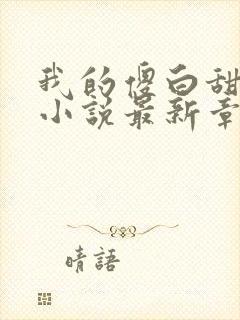 我的傻白甜
小说最新章
晴語